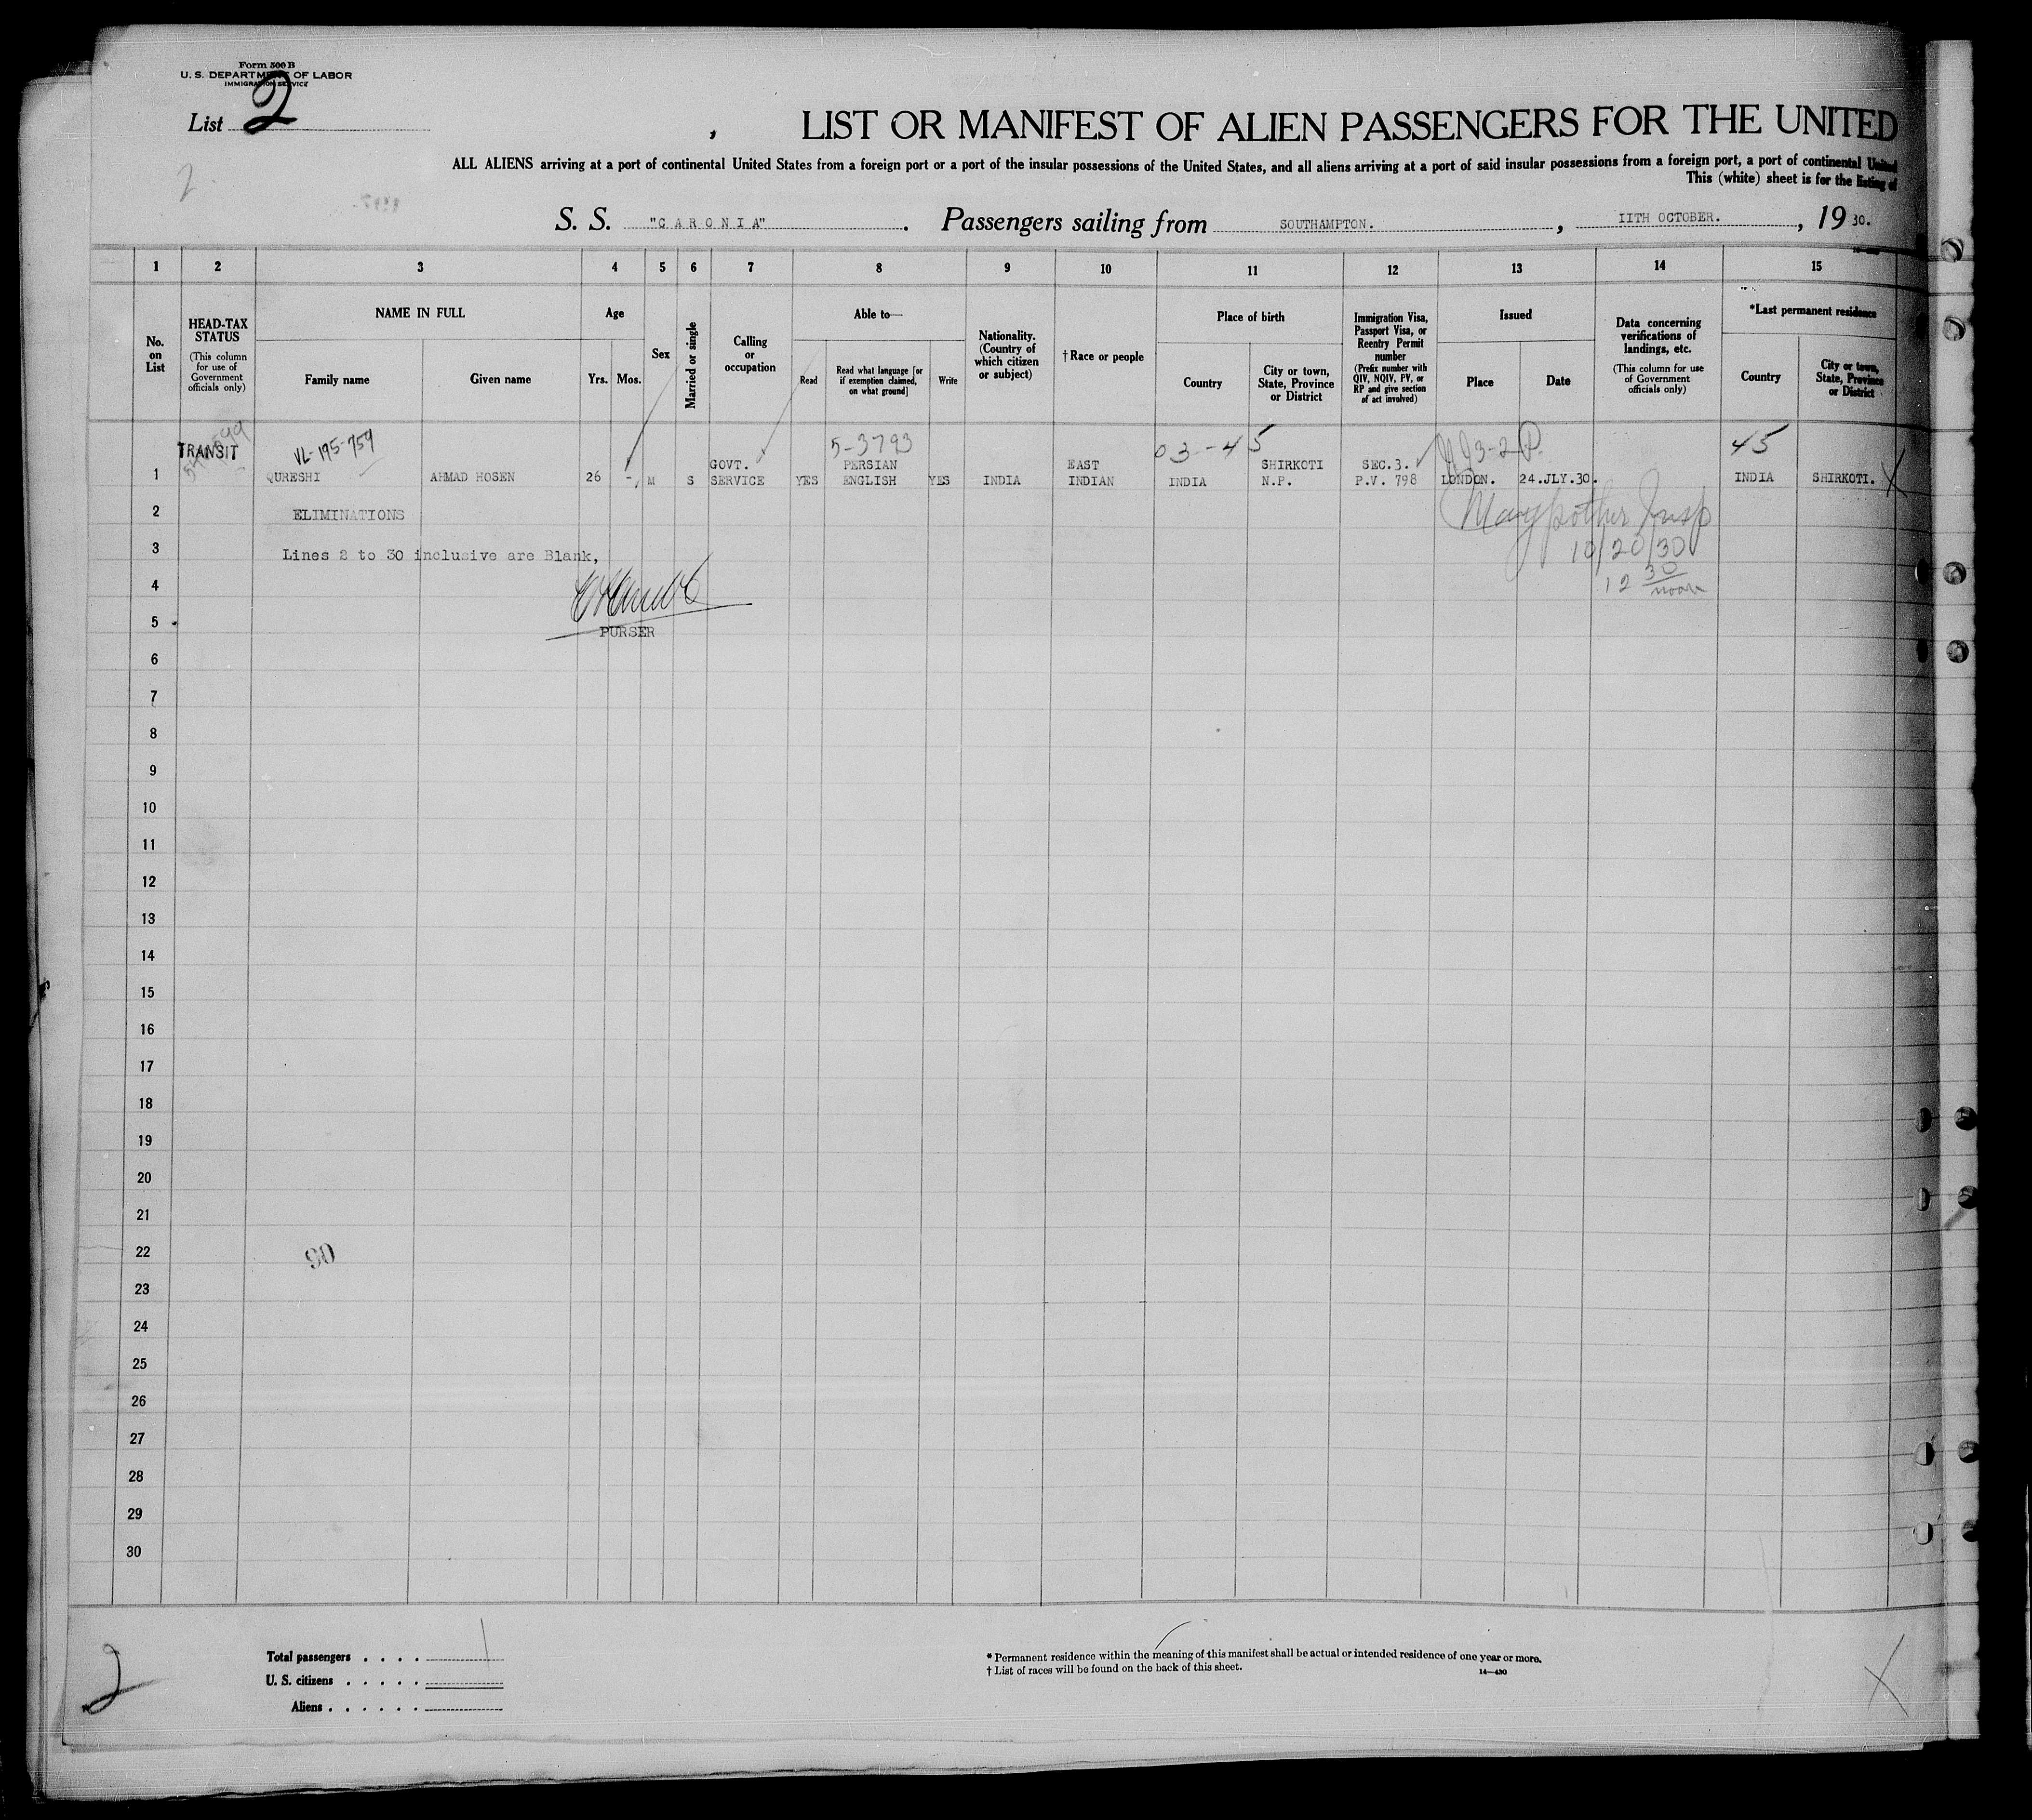 Form 500 B
U. S. DEPARTMENT OF LABOR
IMMIGRATION SERVICE
List 2
2
LIST OR MANIFEST OF ALIEN PASSENGERS FOR THE UNITED
ALL ALIENS arriving at a port of continental United States from a foreign port or a port of the insular possessions of the United States, and all aliens arriving at a port of said insular possessions from a foreign port, a port of continental United
This (white) sheet is for the listing of
S. S. "CARONIA". Passengers sailing from SOUTHAMPTON., 11TH OCTOBER., 19 30.
1 2 3 4 5 6 7 8 9 10 11 12 13 14 15
No. on List
HEAD-TAX STATUS
(This column for use of Government officials only)
NAME IN FULL
Family name
Given name
Age
Yrs.
Mos.
Sex
Married or single
Calling or occupation
Able to—
Read
Read what language [or if exemption claimed, on what ground]
Write
Nationality. (Country of which citizen or subject)
†Race or people
Place of birth
Country
City or town, State, Province or District
Immigration Visa, Passport Visa, or Reentry Permit number
(Prefix number with QIV, NQIV, PV, or RP and give section of act involved)
Issued
Place
Date
Data concerning verifications of landings, etc.
(This column for use of Government officials only)
*Last permanent residence
Country
City or town, State, Province or District
TRANSIT VL-195-759 5-3793 03-45 45
GOVT. PERSIAN EAST SHIRKOTI SEC.3.
1 QURESHI AHMAD HOSEN 26 - M S SERVICE YES ENGLISH YES INDIA INDIAN INDIA N.P. P.V. 798 LONDON. 24.JLY.30. INDIA SHIRKOTI. X
2 ELIMINATIONS
Insp
3 Lines 2 to 30 inclusive are Blank,
10/20/30
4
12 30
noon
5
PURSER
6
7
8
9
10
11
12
13
14
15
16
17
18
19
20
21
22
23
24
25
26
27
28
29
30
2
Total passengers . . . . 1
U. S. citizens . . . . .
Aliens . . . . . .
* Permanent residence within the meaning of this manifest shall be actual or intended residence of one year or more.
† List of races will be found on the back of this sheet.
14—430
X